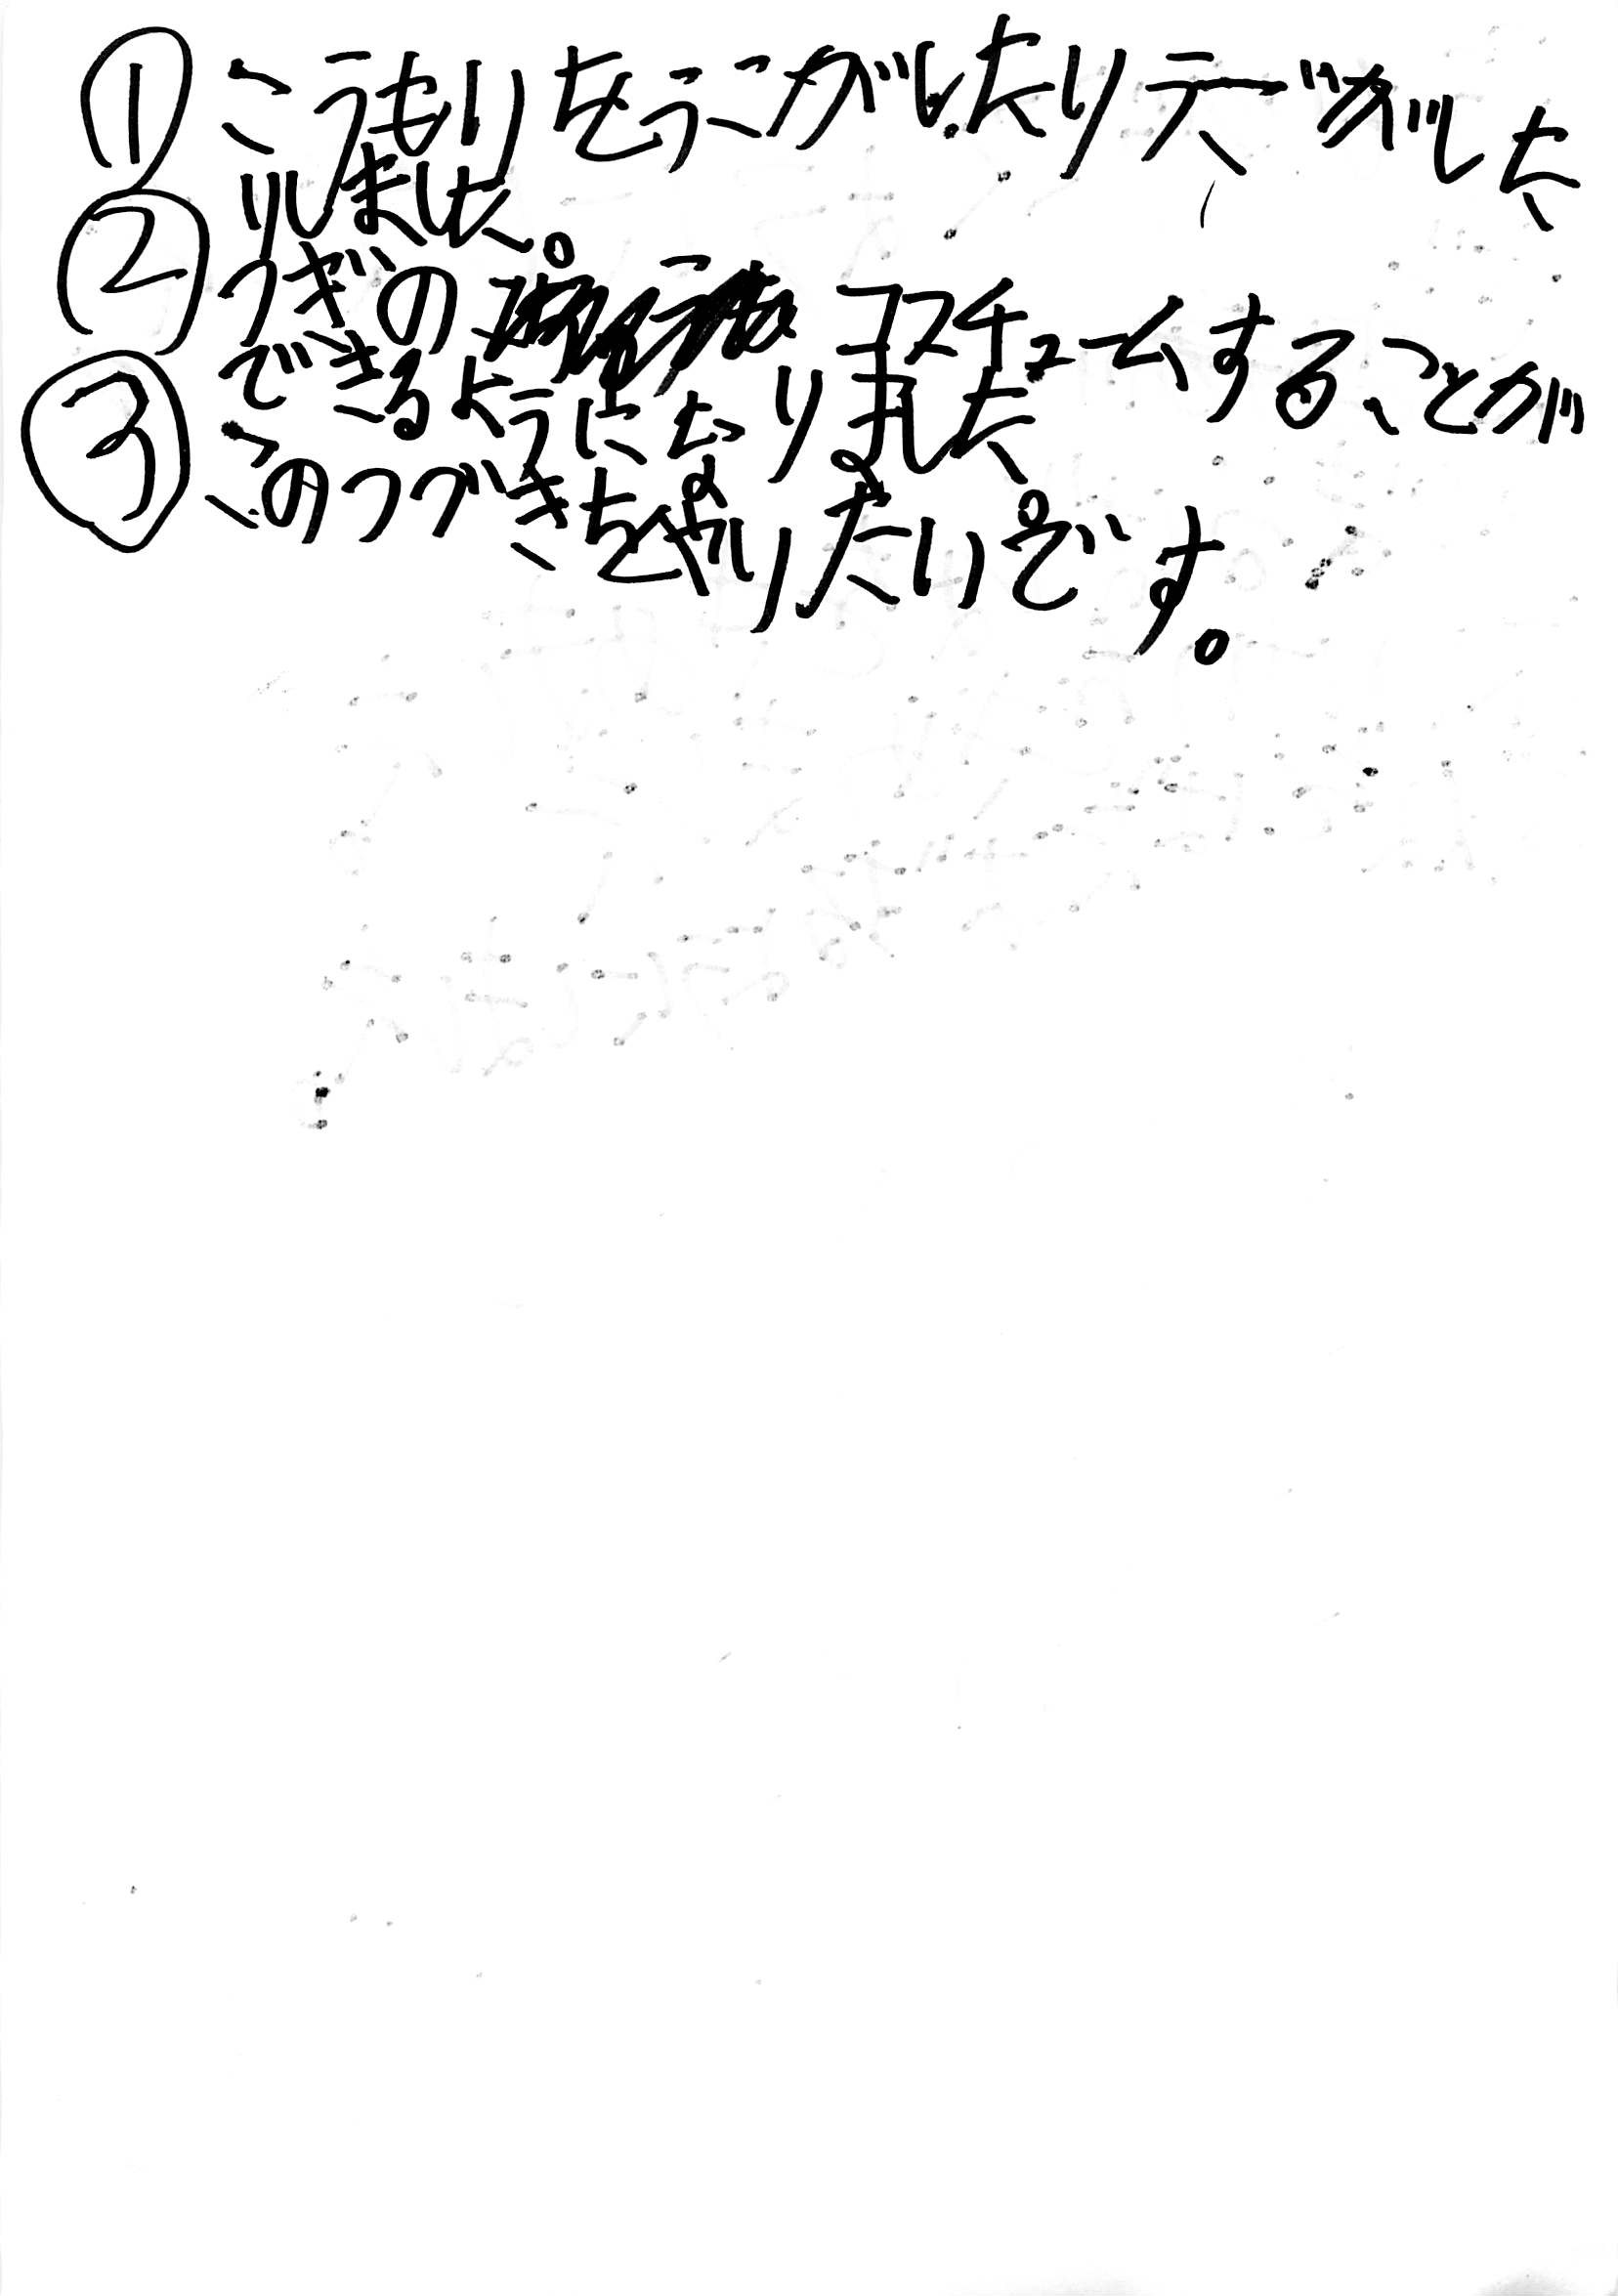 ① こうもりをうごがしたりテˮ
りしました。
② つぎの コスチュームすることが
できるようになりました
③ このつづきをやりたいです。